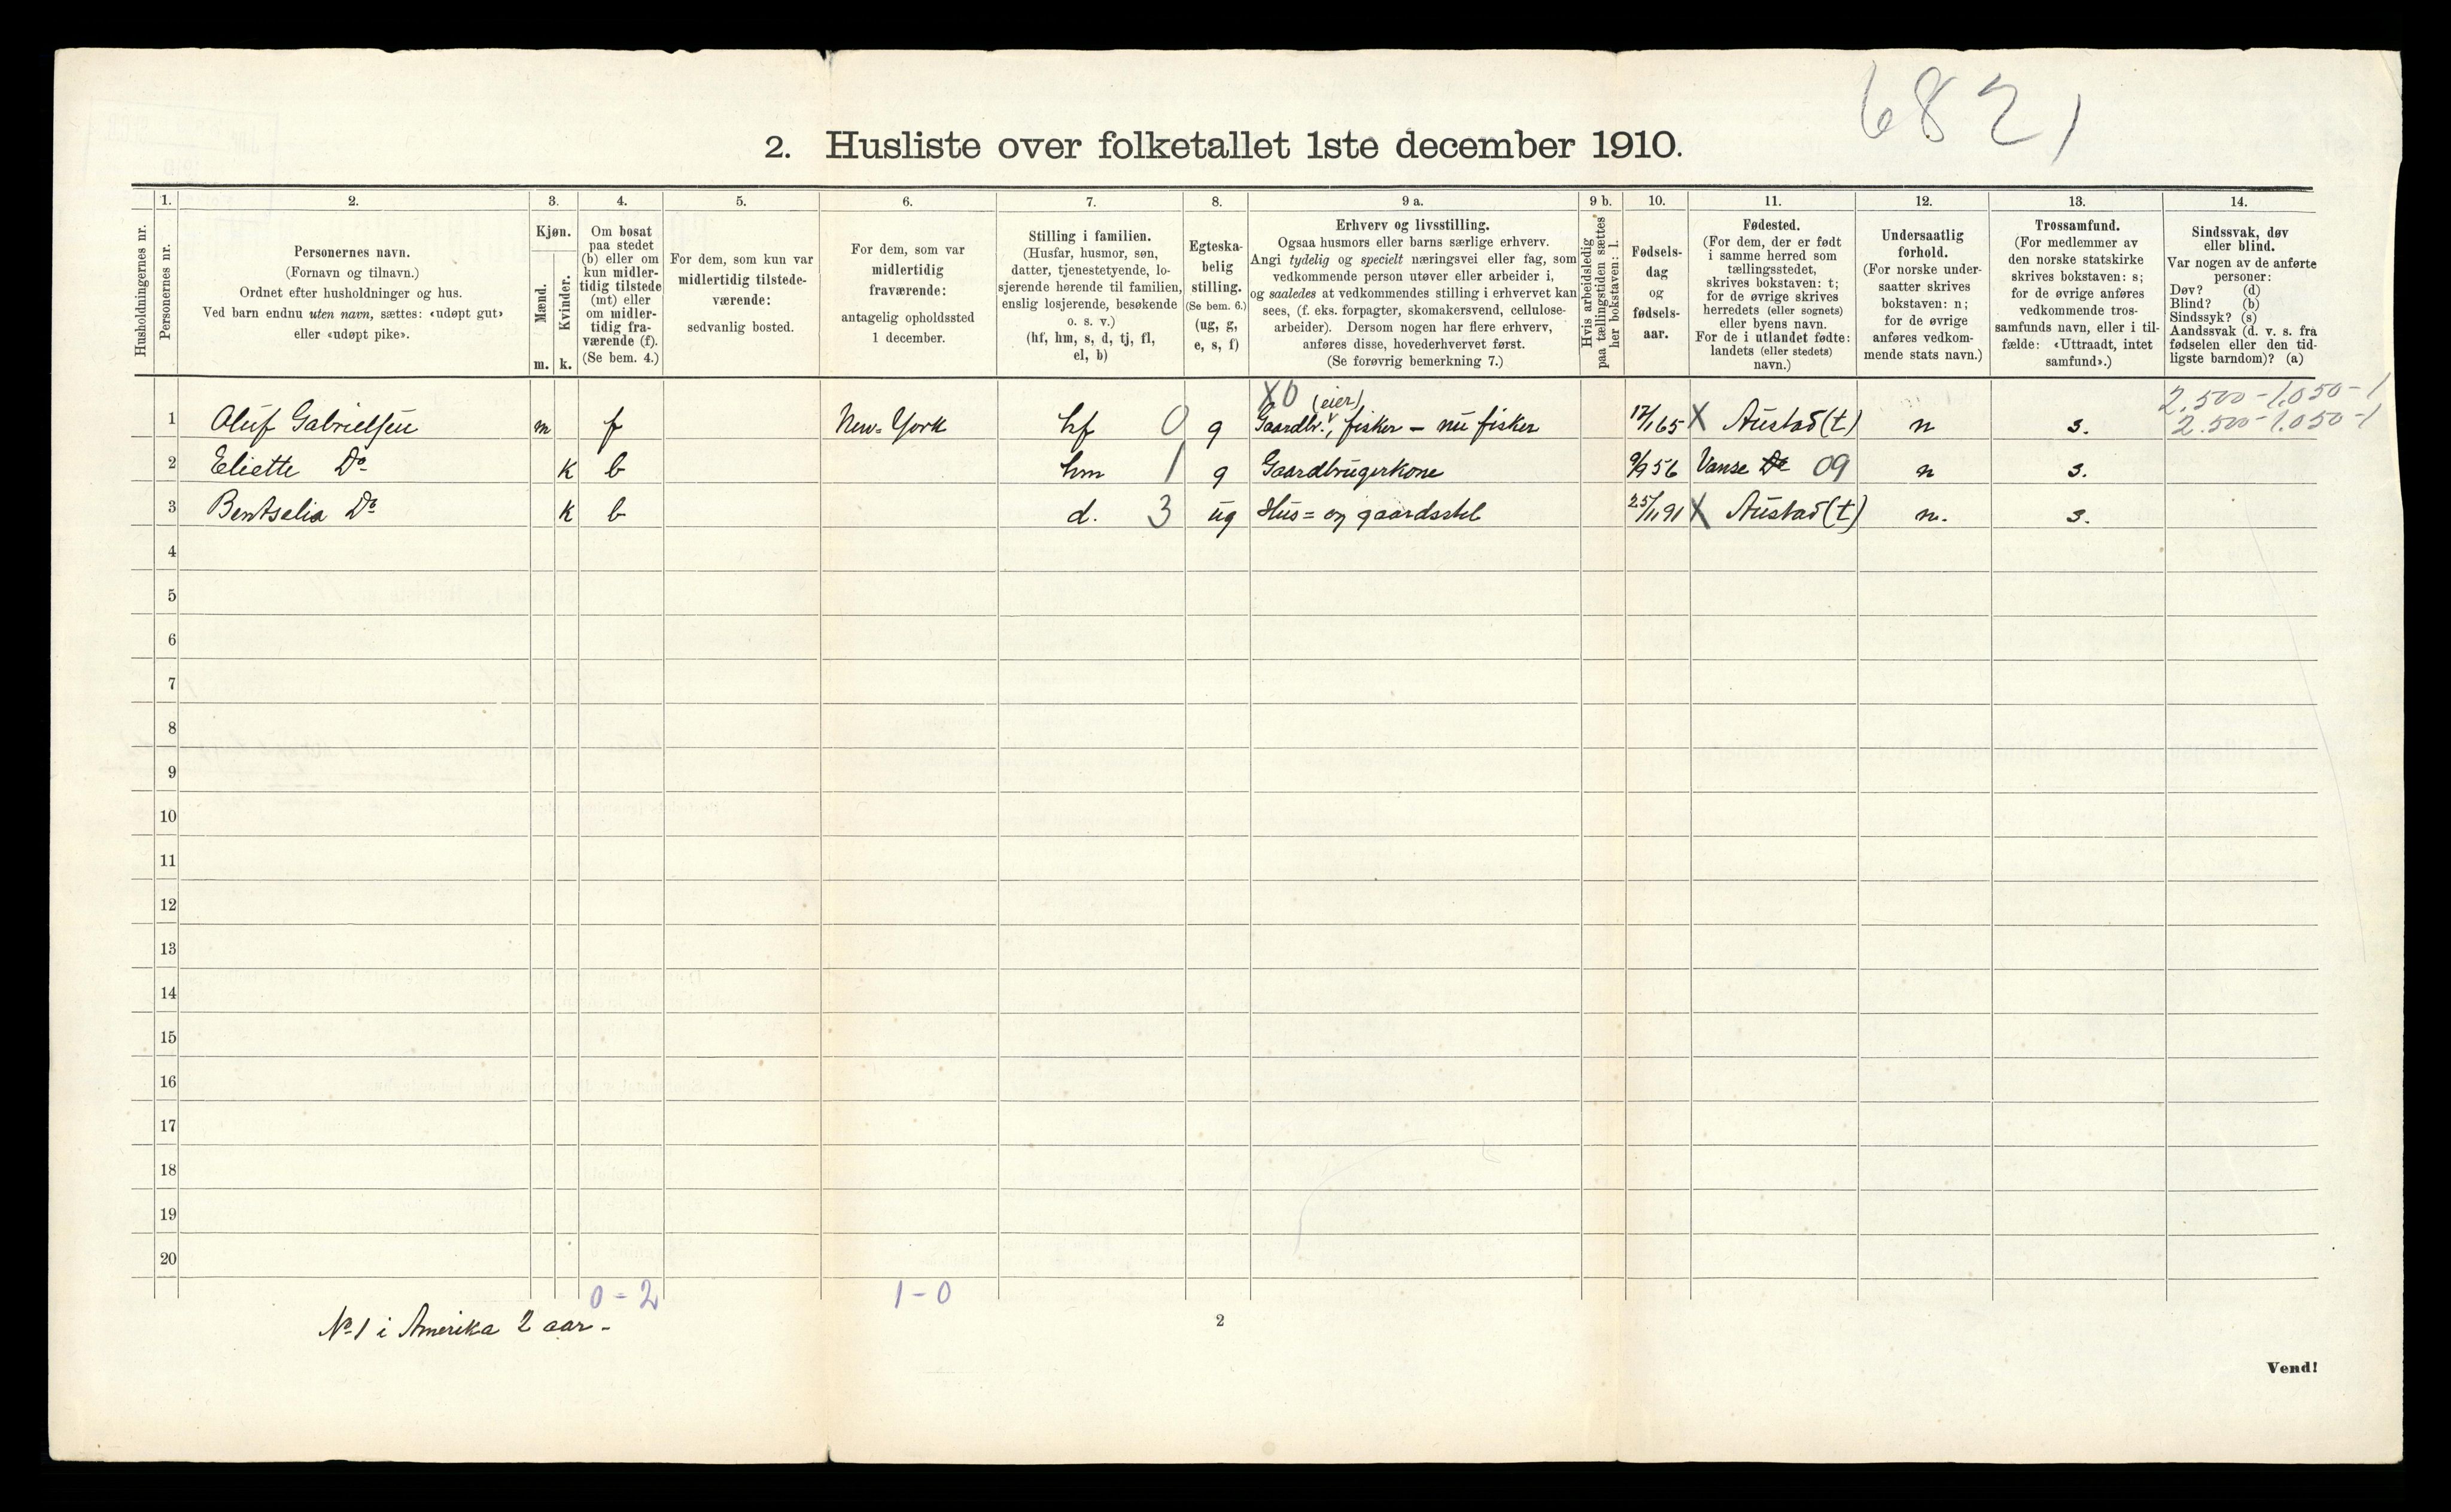 6821
2. Husliste over folketallet 1ste december 1910.
1. 2. 3. 4. 5. 6. 7. 8. 9 a. 9 b. 10. 11. 12. 13. 14.
Husholdningernes nr.
Personernes nr.
Personernes navn.
(Fornavn og tilnavn.)
Ordnet efter husholdninger og hus.
Ved barn endnu uten navn, sættes: «udøpt gut»
eller «udøpt pike».
Kjøn.
Mænd.
Kvinder.
m. k.
Om bosat
paa stedet
(b) eller om
kun midler-
tidig tilstede
(mt) eller
om midler-
tidig fra-
værende (f).
(Se bem. 4.)
For dem, som kun var
midlertidig tilstede-
værende:
sedvanlig bosted.
For dem, som var
midlertidig
fraværende:
antagelig opholdssted
1 december.
Stilling i familien.
(Husfar, husmor, søn,
datter, tjenestetyende, lo-
sjerende hørende til familien,
enslig losjerende, besøkende
o. s. v.)
(hf, hm, s, d, tj, fl,
el, b)
Egteska-
belig
stilling.
(Se bem. 6.)
(ug, g,
e, s, f)
Erhverv og livsstilling.
Ogsaa husmors eller barns særlige erhverv.
Angi tydelig og specielt næringsvei eller fag, som
vedkommende person utøver eller arbeider i,
og saaledes at vedkommendes stilling i erhvervet kan
sees, (f. eks. forpagter, skomakersvend, cellulose-
arbeider). Dersom nogen har flere erhverv,
anføres disse, hovederhvervet først.
(Se forøvrig bemerkning 7.)
Hvis arbeidsledig
paa tællingstiden sættes
her bokstaven: l.
Fødsels-
dag
og
fødsels-
aar.
Fødested.
(For dem, der er født
i samme herred som
tællingsstedet,
skrives bokstaven: t;
for de øvrige skrives
herredets (eller sognets)
eller byens navn.
For de i utlandet fødte:
landets (eller stedets)
navn.)
Undersaatlig
forhold.
(For norske under-
saatter skrives
bokstaven: n;
for de øvrige
anføres vedkom-
mende stats navn.)
Trossamfund.
(For medlemmer av
den norske statskirke
skrives bokstaven: s;
for de øvrige anføres
vedkommende tros-
samfunds navn, eller i til-
fælde: «Uttraadt, intet
samfund».)
Sindssvak, døv
eller blind.
Var nogen av de anførte
personer:
Døv? (d)
Blind? (b)
Sindssyk? (s)
Aandssvak (d. v. s. fra
fødselen eller den tid-
ligste barndom)? (a)
X0 (eier) 2.500-1.050-1
1 Oluf Gabrielsen m f New-York hf 0 g Gaardbr., fisker - nu fisker 17/1 65 X Austad (t) n s. 2.500-1.050-1
2 Eliette Do k b hm 1 g Gaardbrugerkone 9/9 56 Vanse Do 09 n s.
3 Bentselia Do k b d. 3 ug Hus= og gaardsstel 25/11 91 X Austad (t) n. s.
4
5
6
7
8
9
10
11
12
13
14
15
16
17
18
19
20
0-2 1-0
No 1 i Amerika 2 aar-
2
Vend!